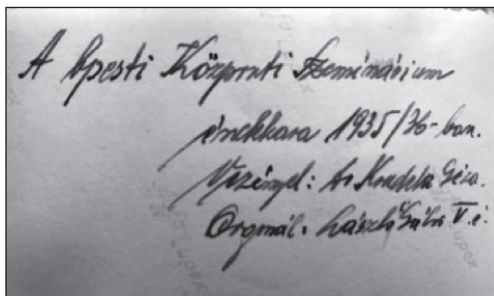 A bpesti Központi Szeminárium
énekkara 1935/36-ban.
Vezényel: dr Kudela Géza.
Orgonál: László Gábor V. é.
Lupex
Lupex